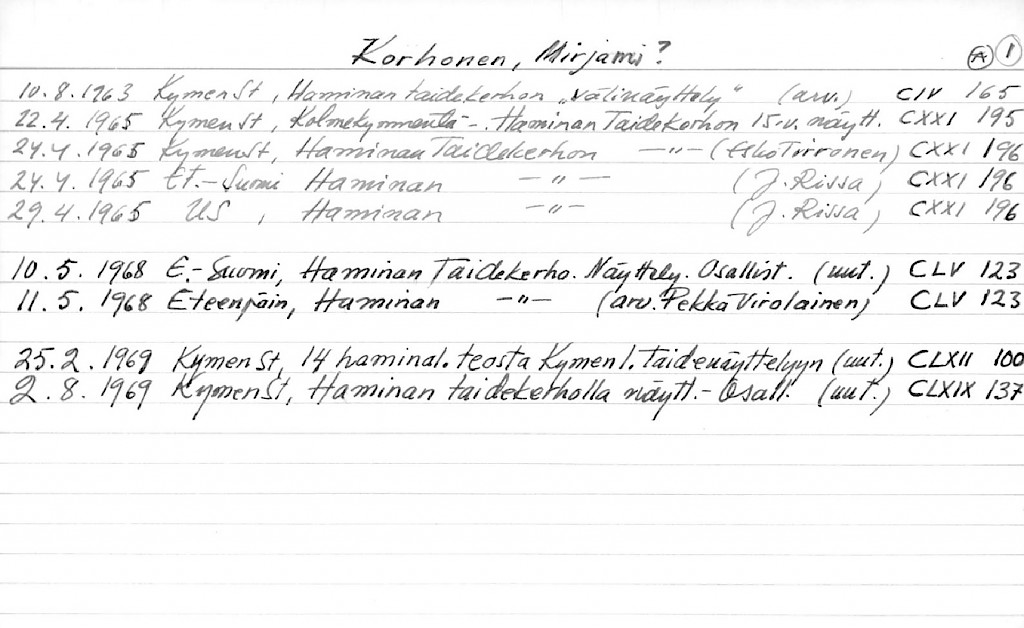 Korhonen, Mirjami? A 1
10.8.1963 KymenSt, Haminan taidekerhon „välinäyttely" (arv.) CIV 165
22.4.1965 KymenSt, Kolmekymmentä - Haminan Taidekerhon 15-v. näytt. CXXI 195
24.4.1965 KymenSt, Haminan Taidekerhon —"— (Esko Tirronen) CXXI 196
24.4.1965 Et.-Suomi Haminan —"— (J. Rissa) CXXI 196
29.4.1965 US, Haminan —"— (J. Rissa) CXXI 196
10.5.1968 E.-Suomi, Haminan Taidekerho. Näyttely. Osallist. (uut.) CLV 123
11.5.1968 Eteenpäin, Haminan —"— (arv. Pekka Virolainen) CLV 123
25.2.1969 KymenSt, 14 haminal. teosta Kymenl. Taidenäyttelyyn (uut.) CLXII 100
2.8.1969 KymenSt, Haminan taidekerholla näytt.- Osall. (uut.) CLXIX 137